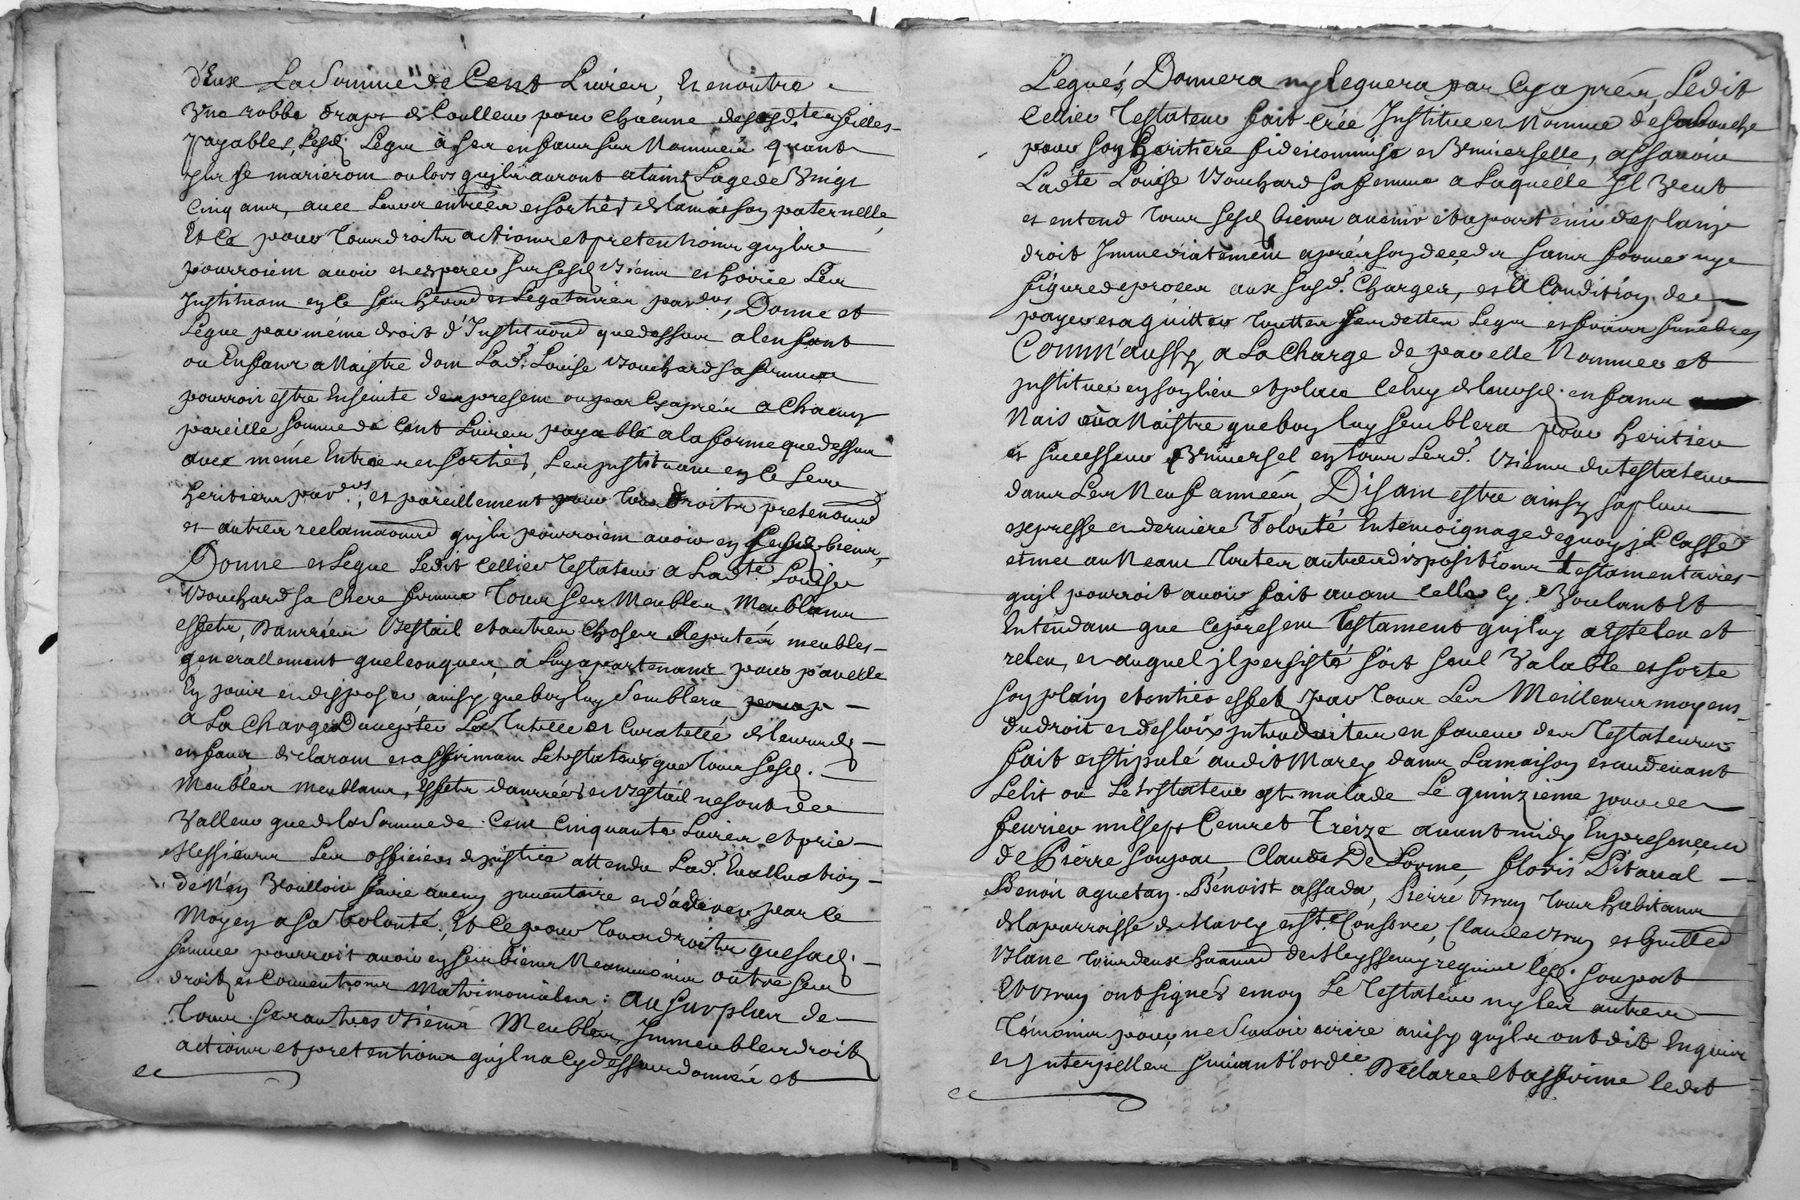 d'Eux La Somme de Cent Livres, Et en outre
Une robbe draps de Coulleur pour chacune desd.tes filles
payables, Lesd. Legue à ses enfans sus Nommés quant
Ils se marieront ou lors qu'ils auront ataint L'age de Vingt
Cinq ans, avec Leurs entrées et sorties de la maison paternelle,
Et Ce pour tous droits actions et pretentions qu'ils
pourroient avoir et esperer sur sesd. biens et hoirie Les
Instituant en Ce ses her.s et Legataires par.ers, Donne et
Legue par méme droit d'Institu.on que dessus a l'enfant
ou Enfans a Naistre dont Lad. Louise Bouchard sa femme
pourroit estre Enseinte de present ou par Cy après a Chacun
pareille somme de Cent Livres payable a la forme que dessus
avec méme Entrées et sorties, Les Instituant en Ce ses
heritiers par.ers, et pareillement pour tous droits preten.ons
et autres reclama.ons qu'ils pourroient avoir en sesd. biens,
Donne et Legue Ledit Cellier Testateur a Ladte. Louise
Bouchard sa Chere femme Tous ses Meubles Meublans
effets, Danrées Bestail et autres Choses Reputés meubles
generallement quelconques, a Luy apartenans pour par elle
En jouir et disposer ainsy que bon luy Semblera
a La Charge D'accepter La Tutelle et Curatelle de leursd.
enfans, declarant et affirmant Le testateur que Tous sesd.
Meubles meublans, Effets danrées et Bestail ne sont de
Valleur que de la Somme de Cent Cinquante Livres et prie
Messieurs Les officiers de justice attendu Lad. Evalluation
de N'en Voulloir faire aucun jnventaire
Moyen a sa Volonté, Et Ce pour Tous droits que sad.
femme pourroit avoir en ses biens Neanmoins outre ses
droits et Conventions Matrimoniales; Au surplus de
Tous ses autres Biens Meubles Immeubles droits
actions et pretentions qu'il n'a Cy dessus donnée et
Legués, Donnera ny Leguera par Cy après, Ledit
Cellier Testateur fait Créé Institue et Nomme de sa bouche
pour son Heritiere fideicommise et Universelle, assavoir
Ladte Louise Bouchard sa femme a Laquelle Il Veut
et entend Tous sesd. biens avenir et apartenir de plain
droit Immediatement après son deceds sans forme ny
figure de proces aux susd. Charges, et à Condition de
payer et aquitter Toutes ses dettes Legue et frais funebres
Comm'aussy, a La Charge de par elle Nommer et
jnstituer en son lieu et place Celuy de leursd. enfans
Nais ou a Naistre que bon luy semblera pour heritier
et successeur Universel en tous Lesd. Biens du testateur
dans Les Neuf années, Disant estre ainsy sa plus
expresse et derniere Volonté En temoignage de quoy jl Casse
et met au Neant Toutes autres dispositions testamentaires
qu'jl pourroit avoir fait avant Celle Cy. Voulant Et
Entendant que Ce present Testament qu'jl luy a esté leu et
releu, et auquel jl persiste soit seul Valable et sorte
son plain et entier effet par tous Les Meilleurs moyens
du droit et des loix jntroduites en faveur des Testateurs
fait et stipulé audit Marcy dans La maison et au devant
Le lit ou Le testateur est malade Le quinzieme jour de
feuvrier mil sept Cens et Treize avant midy En presence
de Pierre Soupat Claude De Lorme, floris Pitaval
Benoit aguetan. Benoist assada, Pierre Brun Tous habitans
de la parroisse de Marcy et Ste. Consorce, Claude Brun et Guill.
Blanc Tous deux de Meysseny requis lesd. Soupat
Et Brun ont signés et non Le Testateur ny les autres
Témoins pour ne Scavoir écrire ainsy qu'jls ont dit Enquis
et jnterpellés suivant l'ord.ce Declare et affirme ledit